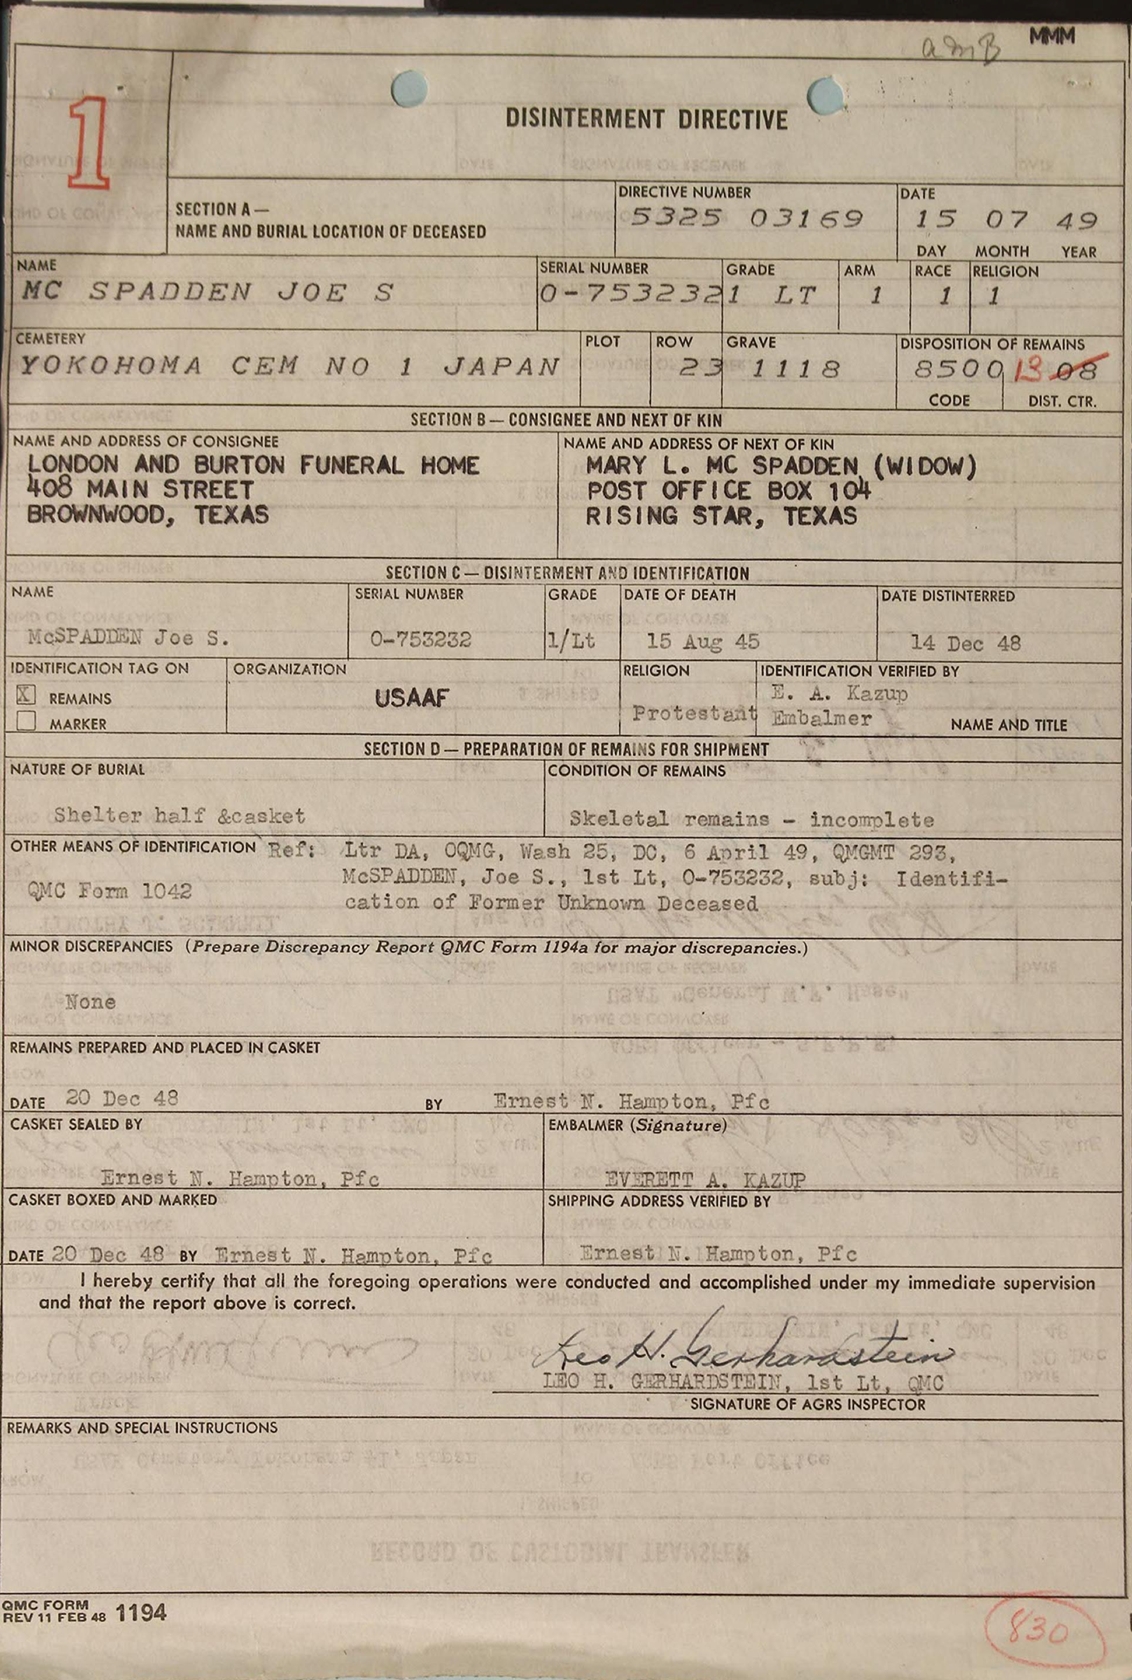 MMM
1
DISINTERMENT DIRECTIVE
SECTION A —
NAME AND BURIAL LOCATION OF DECEASED
DIRECTIVE NUMBER
5325 03169
DATE
15 07 49
DAY MONTH YEAR
NAME
MC SPADDEN JOE S
SERIAL NUMBER
O-753232
GRADE
1 LT
ARM
1
RACE
1
RELIGION
1
CEMETERY
YOKOHOMA CEM NO 1 JAPAN
PLOT
ROW
23
GRAVE
1118
DISPOSITION OF REMAINS
8500 13 08
CODE DIST. CTR.
SECTION B — CONSIGNEE AND NEXT OF KIN
NAME AND ADDRESS OF CONSIGNEE
LONDON AND BURTON FUNERAL HOME
408 MAIN STREET
BROWNWOOD, TEXAS
NAME AND ADDRESS OF NEXT OF KIN
MARY L. MC SPADDEN (WIDOW)
POST OFFICE BOX 104
RISING STAR, TEXAS
SECTION C — DISINTERMENT AND IDENTIFICATION
NAME
McSPADDEN Joe S.
SERIAL NUMBER
O-753232
GRADE
1/Lt
DATE OF DEATH
15 Aug 45
DATE DISTINTERRED
14 Dec 48
IDENTIFICATION TAG ON
X REMAINS
MARKER
ORGANIZATION
USAAF
RELIGION
Protestant
IDENTIFICATION VERIFIED BY
E. A. Kazup
Embalmer
NAME AND TITLE
SECTION D — PREPARATION OF REMAINS FOR SHIPMENT
NATURE OF BURIAL
Shelter half &casket
CONDITION OF REMAINS
Skeletal remains - incomplete
OTHER MEANS OF IDENTIFICATION Ref: Ltr DA, OQMG, Wash 25, DC, 6 April 49, QMGMT 293,
McSPADDEN, Joe S., 1st Lt, O-753232, subj: Identifi-
QMC Form 1042
cation of Former Unknown Deceased
MINOR DISCREPANCIES (Prepare Discrepancy Report QMC Form 1194a for major discrepancies.)
None
REMAINS PREPARED AND PLACED IN CASKET
DATE 20 Dec 48 BY Ernest N. Hampton, Pfc
CASKET SEALED BY
Ernest N. Hampton, Pfc
EMBALMER (Signature)
EVERETT A. KAZUP
CASKET BOXED AND MARKED
DATE 20 Dec 48 BY Ernest N. Hampton, Pfc
SHIPPING ADDRESS VERIFIED BY
Ernest N. Hampton, Pfc
I hereby certify that all the foregoing operations were conducted and accomplished under my immediate supervision
and that the report above is correct.
Leo H. Gerhardstein
LEO H. GERHARDSTEIN, 1st Lt, QMC
SIGNATURE OF AGRS INSPECTOR
REMARKS AND SPECIAL INSTRUCTIONS
QMC FORM
REV 11 FEB 48 1194
830